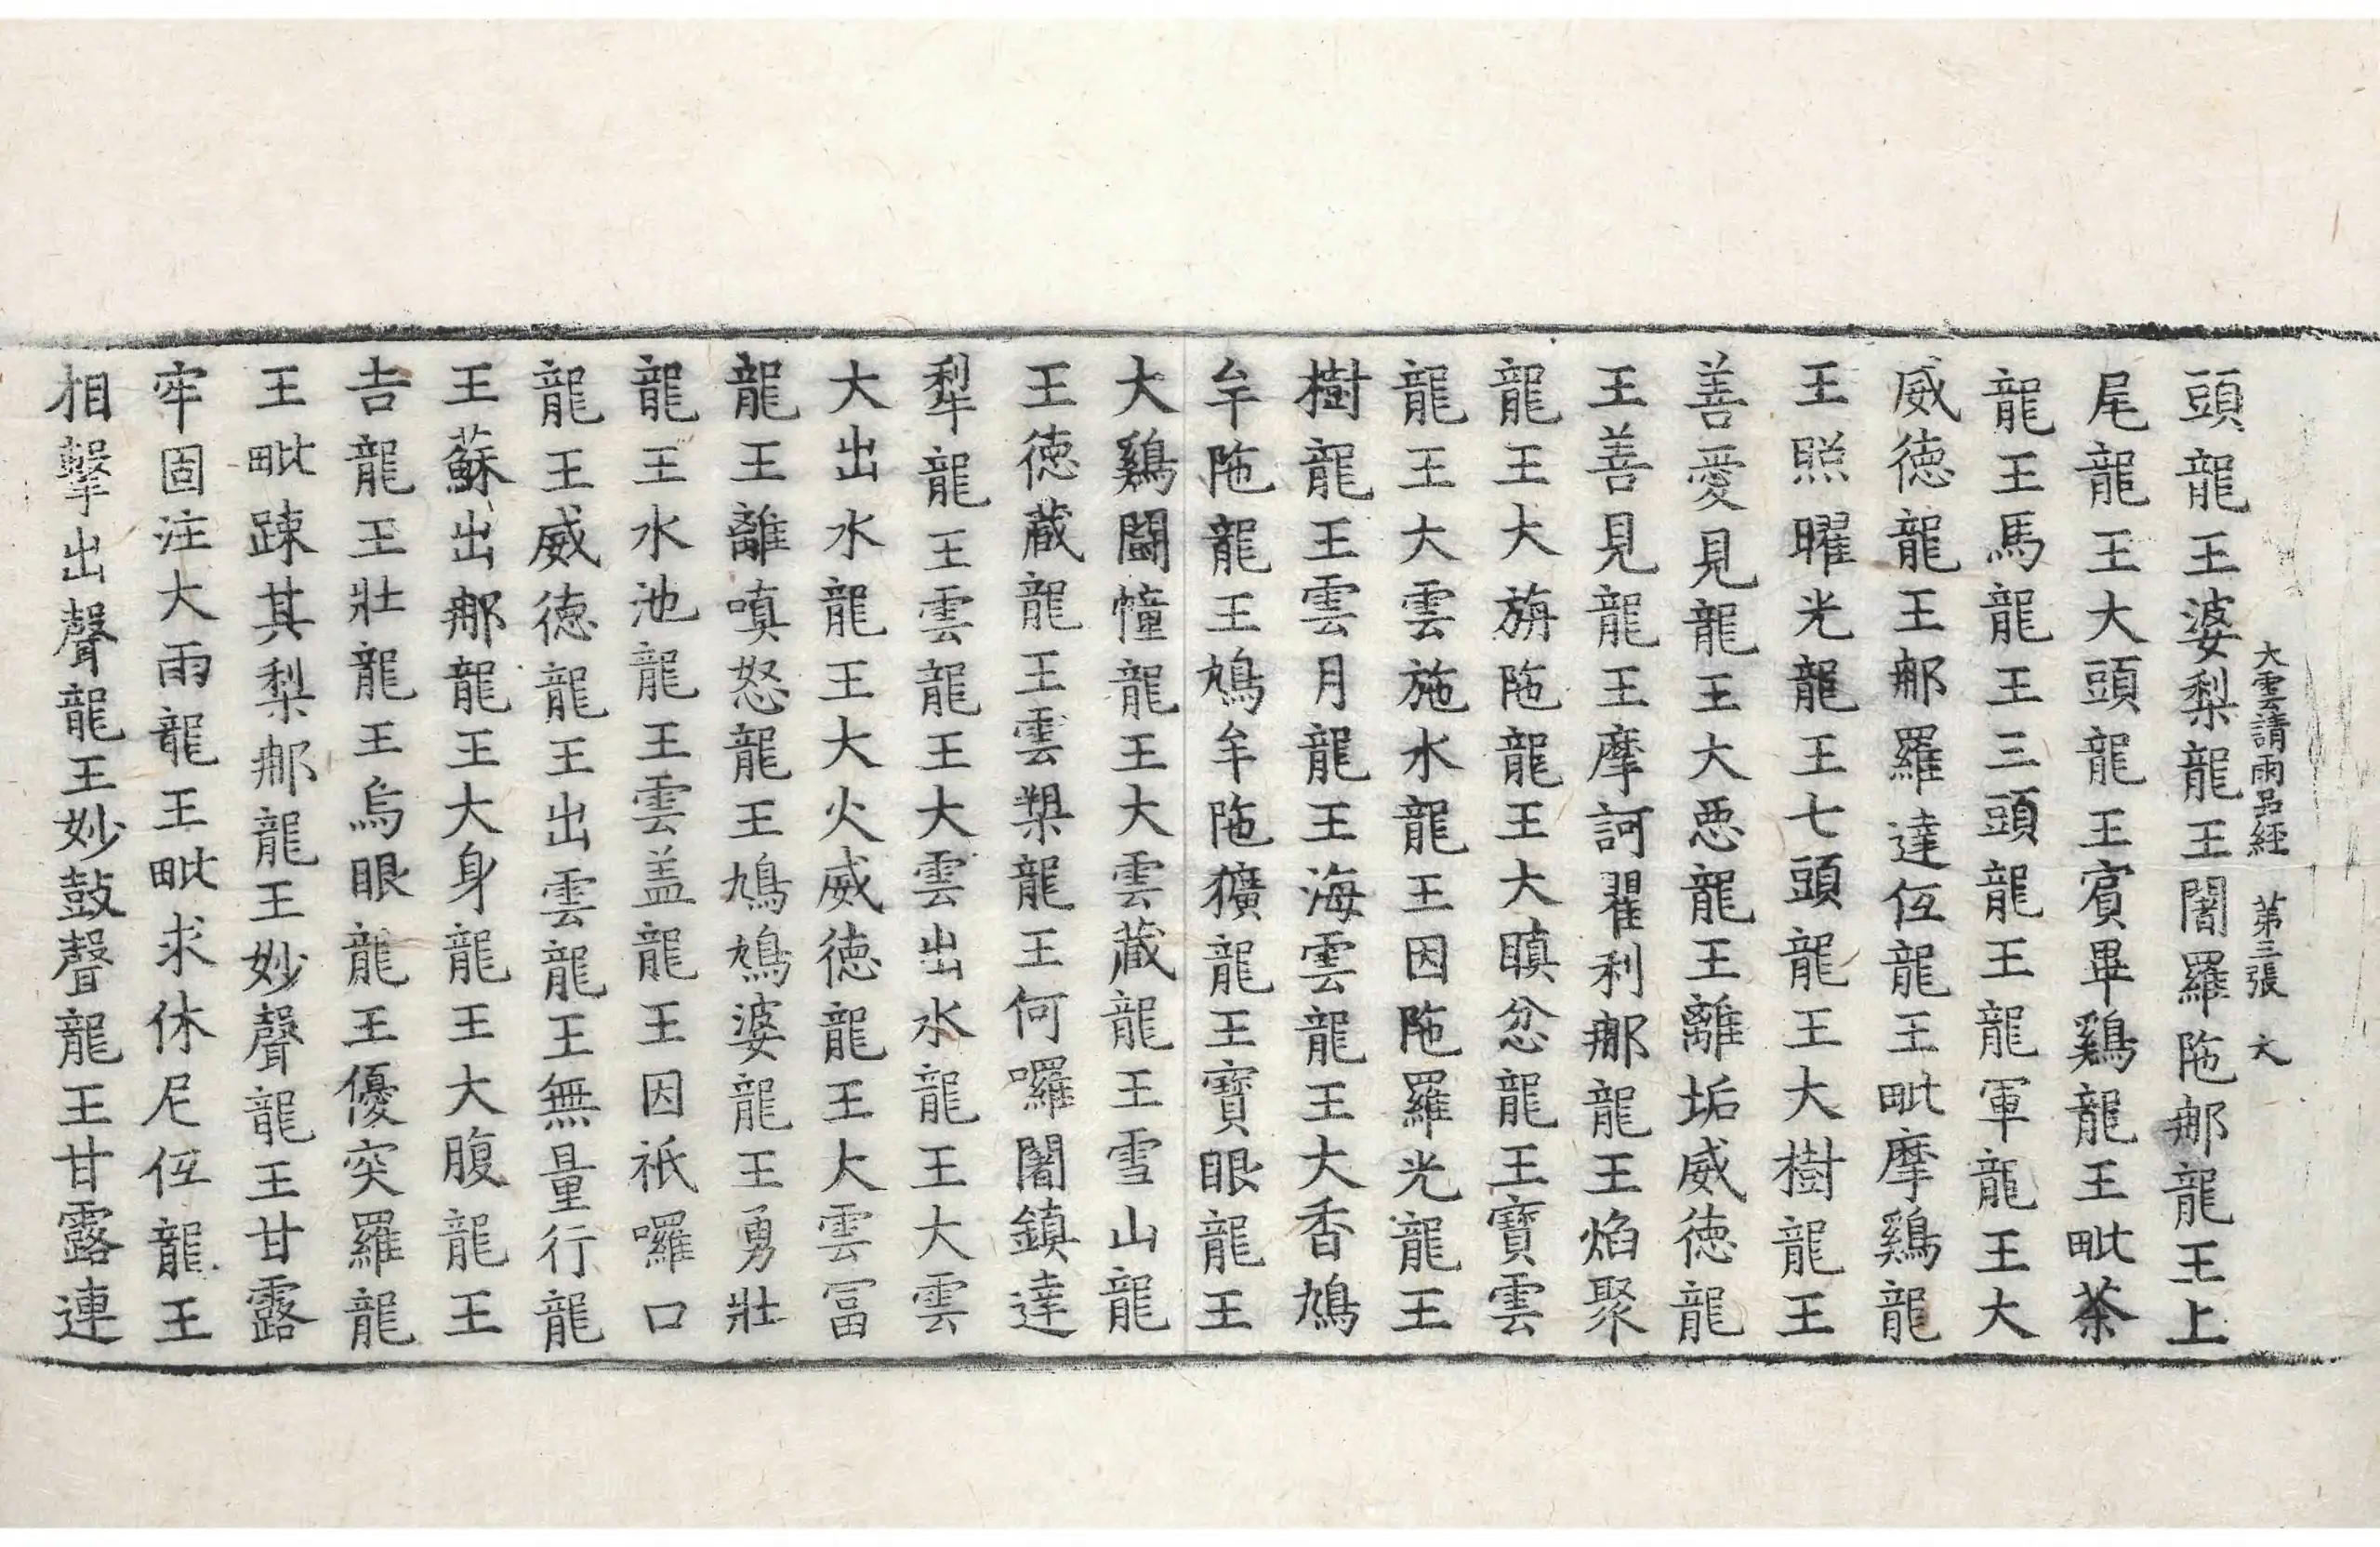 大雲請雨品經 第三張 文
頭龍王婆梨龍王闍羅陁那龍王上
尾龍王大頭龍王賔畢鷄龍王毗茶
龍王馬龍王三頭龍王龍軍龍王大
威徳龍王那羅達伍龍王毗摩鷄龍
王照曜光龍王七頭龍王大樹龍王
善愛見龍王大惡龍王離垢威徳龍
王善見龍王摩訶翟利那龍王焰聚
龍王大旃陁龍王大瞋忿龍王寶雲
龍王大雲施水龍王因陁羅光龍王
樹龍王雲月龍王海雲龍王大香鳩
牟陁龍王鳩牟陁獷龍王寶眼龍王
大鷄闘幢龍王大雲蔵龍王雪山龍
王徳蔵龍王雲槊龍王何囉闍鎮達
犁龍王雲龍王大雲出水龍王大雲
大出水龍王大火威徳龍王大雲冨
龍王離嗔怒龍王鳩鳩婆龍王勇壯
龍王水池龍王雲盖龍王因祇囉口
龍王威徳龍王出雲龍王無量行龍
王蘇出那龍王大身龍王大腹龍王
吉龍王壯龍王烏眼龍王優突羅龍
王毗踈其梨那龍王妙聲龍王甘露
牢固注大雨龍王毗求休尼伍龍王
相擊出聲龍王妙鼓聲龍王甘露連